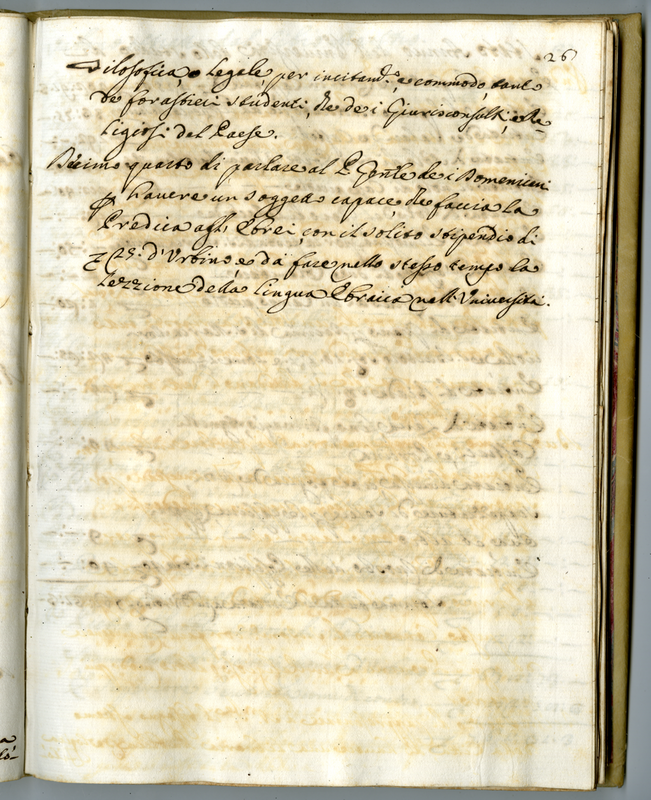 26
Filosofica, e Legale per incitam.to e commodo tant
de forastieri studenti, che de i Giurisconsulti, e Re-
ligiosi del Paese.
Decimo quarto di parlare al P. Gen'le de i Domenicani
p havere un sogged.o capace, che faccia la
Predica agli Ebrei con il solito stipendio di
d'Urbino, e da fare nello stesso tempo la
Lezzione della lingua Ebraica nell'Università.